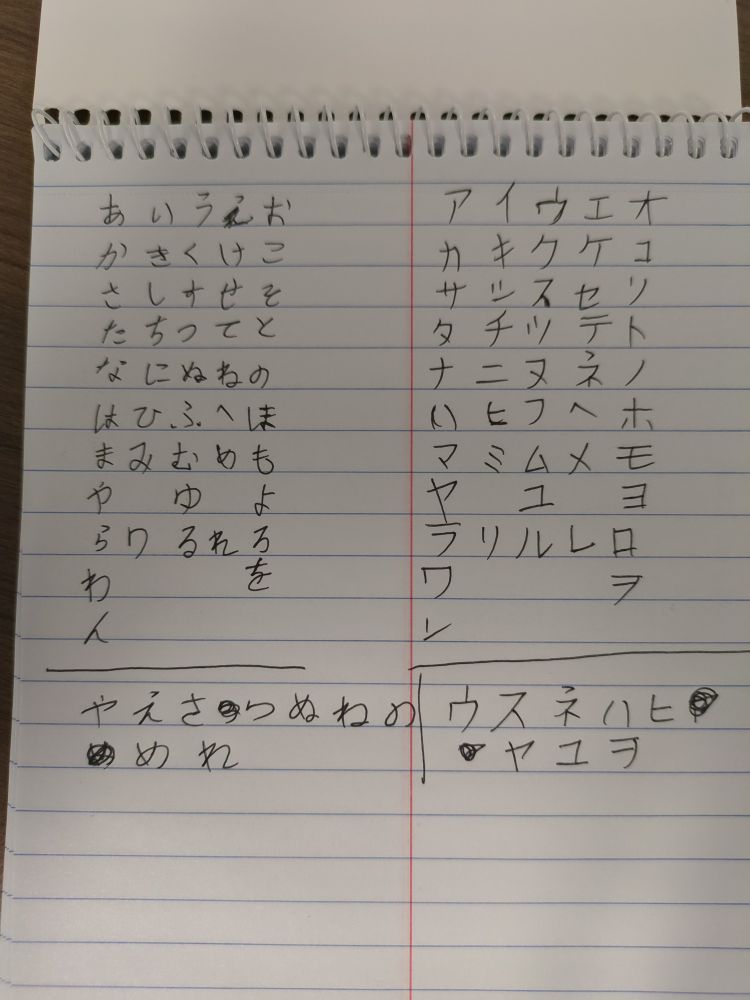 あいうえお アイウエオ
かきくけこ カキクケコ
さしすせそ サシスセソ
たちつてと タチツテト
なにぬねの ナニヌネノ
はひふへほ ハヒフヘホ
まみむめも マミムメモ
や ゆ よ ヤ ユ ヨ
らりるれろ ラリルレロ
わ を ワ ヲ
ん ン
やえさつぬねの ウスネハヒ
めれ ヤユヲ